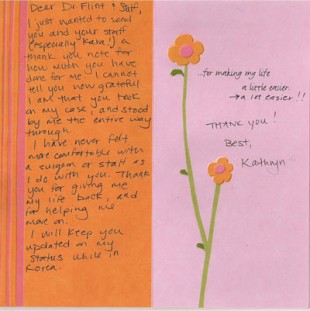 Dear Dr. Flint & Staff,
I just wanted to send
you and your staff
(especially Kara!) a
thank you note for
how much you have
done for me. I cannot
tell you how grateful
I am that you took
on my case, and stood
by me the entire way
through.
I have never felt
more comfortable with
a surgeon or staff as
I do with you. Thank
you for giving me
my life back, and
for helping me
move on.
I will keep you
updated on my
status while in
Korea.
...for making my life
a little easier.
→ a lot easier!!
THANK YOU!
Best,
Kathryn